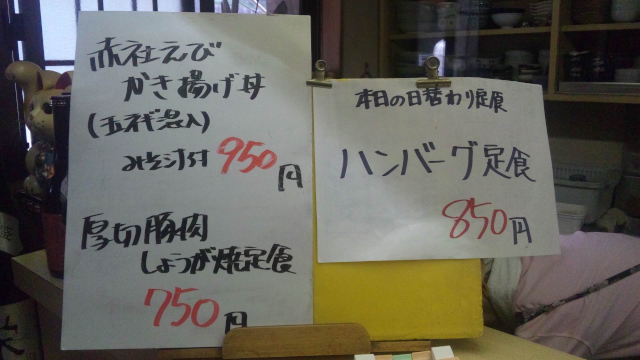 赤社えび
かき揚げ丼
(玉ネギ混入)
みそ汁付 950円
厚切豚肉
しょうが焼定食
750円
本日の日替わり定食
ハンバーグ定食
850円